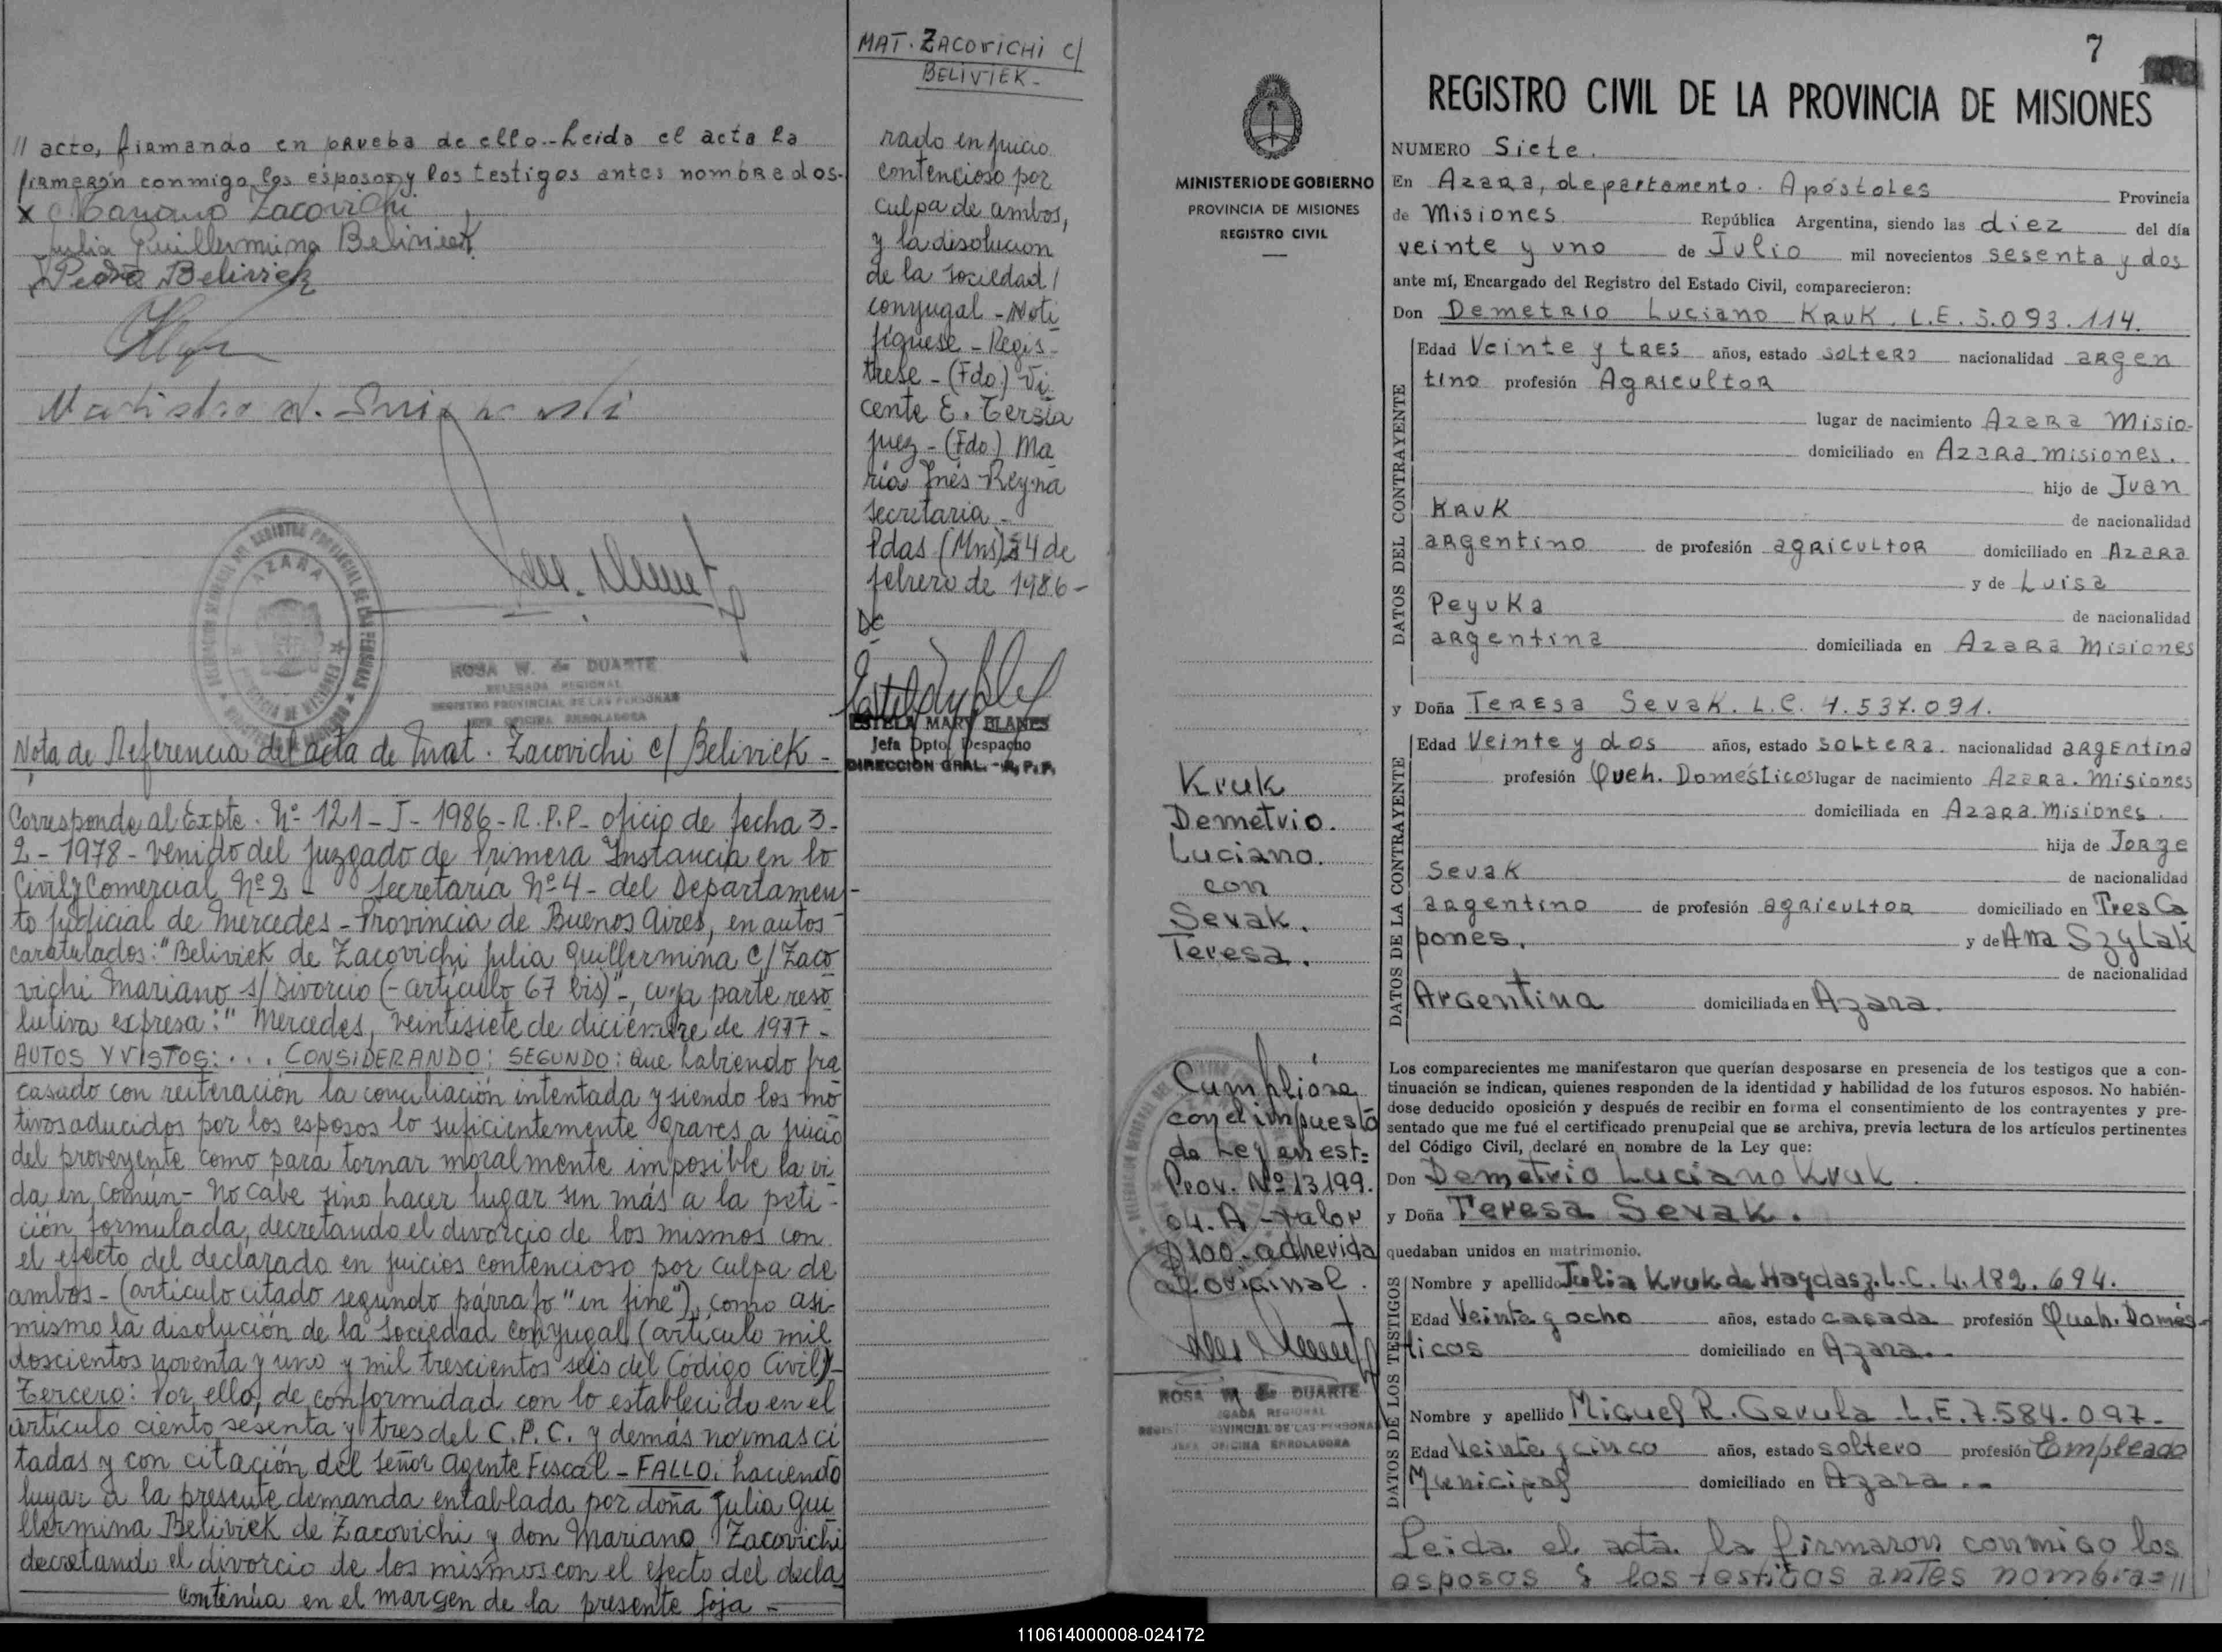 // acto, firmando en prueba de ello.-Leida el acta la
firmarón conmigo los esposos y los testigos antes nombrados.-
x Mariano Zacovichi
Julia Guillermina Beliviek
x Pedro Beliviek
REGISTRO PROVINCIAL DE LAS PERSONAS
AZARA
PROVINCIA DE MISIONES
ROSA W. de DUARTE
DELEGADA REGIONAL
REGISTRO PROVINCIAL DE LAS PERSONAS
JEFE OFICINA ENROLADORA
Nota de Referencia del acta de Mat. Zacovichi c/ Beliviek -
Corresponde al Expte. Nº 121 - J - 1986 - R.P.P. - oficio de fecha 3-
2 - 1978 - venido del Juzgado de Primera Instancia en lo
Civil y Comercial Nº 2 - Secretaría Nº 4 - del Departamen-
to Judicial de Mercedes - Provincia de Buenos Aires, en autos
caratulados: "Beliviek de Zacovichi Julia Guillermina c/ Zaco
vichi Mariano s/ Divorcio (- artículo 67 bis)" -, cuya parte reso
lutiva expresa: " Mercedes, veintisiete de diciembre de 1977 -
AUTOS Y VISTOS: . . . CONSIDERANDO: SEGUNDO: Que habiendo fra
casado con reiteración la conciliación intentada y siendo los mo
tivos aducidos por los esposos lo suficientemente graves a juicio
del proveyente como para tornar moralmente imposible la vi
da en común - No cabe sino hacer lugar sin más a la peti-
ción formulada, decretando el divorcio de los mismos con
el efecto del declarado en juicios contencioso por culpa de
ambos - (artículo citado segundo párrafo "in fine"), como así-
mismo la disolución de la sociedad conyugal (artículo mil
doscientos noventa y uno y mil trescientos seis del Código Civil)-
Tercero: Por ello, de conformidad con lo establecido en el
artículo ciento sesenta y tres del C.P.C. y demás normas ci
tadas y con citación del señor Agente Fiscal - FALLO: haciendo
lugar a la presente demanda entablada por doña Julia Gui
llermina Beliviek de Zacovichi y don Mariano Zacovichi
decretando el divorcio de los mismos con el efecto del decla
Continúa en el margen de la presente foja -
MAT. ZACOVICHI C/
BELIVIEK -
rado en juicio
contencioso por
culpa de ambos,
y la disolucion
de la sociedad /
conyugal - Noti
fíquese - Regis-
trese - (Fdo.) Vi
cente E. Tersia
juez - (Fdo.) Ma
ría Inés Reyna
secretaria -
Pdas (Mns) 24 de
febrero de 1986 -
DC
ESTELA MARY BLANES
Jefa Dpto. Despacho
DIRECCIÓN GRAL. - R.P.P.
MINISTERIO DE GOBIERNO
PROVINCIA DE MISIONES
REGISTRO CIVIL
Kruk
Demetrio.
Luciano.
con
Sevak.
Teresa.
Cumplióse
con el impuesto
de Ley en est:
Prov. Nº 13199.
04. A - valor
$ 100.- adherida
al original.
ROSA W. de DUARTE
DELEGADA REGIONAL
REGISTRO PROVINCIAL DE LAS PERSONAS
JEFE OFICINA ENROLADORA
7
REGISTRO CIVIL DE LA PROVINCIA DE MISIONES
NUMERO Siete.
En Azara, departamento. Apóstoles Provincia
de Misiones República Argentina, siendo las diez del día
veinte y uno de Julio mil novecientos sesenta y dos
ante mí, Encargado del Registro del Estado Civil, comparecieron:
Don Demetrio Luciano Kruk. L.E. 5.093.114.
DATOS DEL CONTRAYENTE
Edad Veinte y tres años, estado soltero nacionalidad argen
tino profesión Agricultor
lugar de nacimiento Azara Misio-
domiciliado en Azara. misiones.
hijo de Juan
Kruk de nacionalidad
argentino de profesión agricultor domiciliado en Azara
y de Luisa
Peyuka de nacionalidad
argentina domiciliada en Azara Misiones
y Doña Teresa Sevak. L.C. 4.537.091.
DATOS DE LA CONTRAYENTE
Edad Veinte y dos años, estado soltera. nacionalidad argentina
profesión Queh. Domésticos lugar de nacimiento Azara. Misiones
domiciliada en Azara. Misiones.
hija de Jorge
Sevak de nacionalidad
argentino de profesión agricultor domiciliado en Tres Ca
pones. y de Ana Szylak
de nacionalidad
Argentina domiciliada en Azara.
Los comparecientes me manifestaron que querían desposarse en presencia de los testigos que a con-
tinuación se indican, quienes responden de la identidad y habilidad de los futuros esposos. No habién-
dose deducido oposición y después de recibir en forma el consentimiento de los contrayentes y pre-
sentado que me fué el certificado prenupcial que se archiva, previa lectura de los artículos pertinentes
del Código Civil, declaré en nombre de la Ley que:
Don Demetrio Luciano Kruk.
y Doña Teresa Sevak.
quedaban unidos en matrimonio.
DATOS DE LOS TESTIGOS
Nombre y apellido Julia Kruk de Haydasz. L.C. 4.182.694.
Edad Veinte y ocho años, estado casada profesión Queh. Domés-
ticos domiciliado en Azara.
Nombre y apellido Miguel R. Gevula L.E. 7.584.097-
Edad Veinte y cinco años, estado soltero profesión Empleado
Municipal domiciliado en Azara..
Leida el acta la firmaron conmigo los
esposos y los testigos antes nombra=//
110614000008-024172